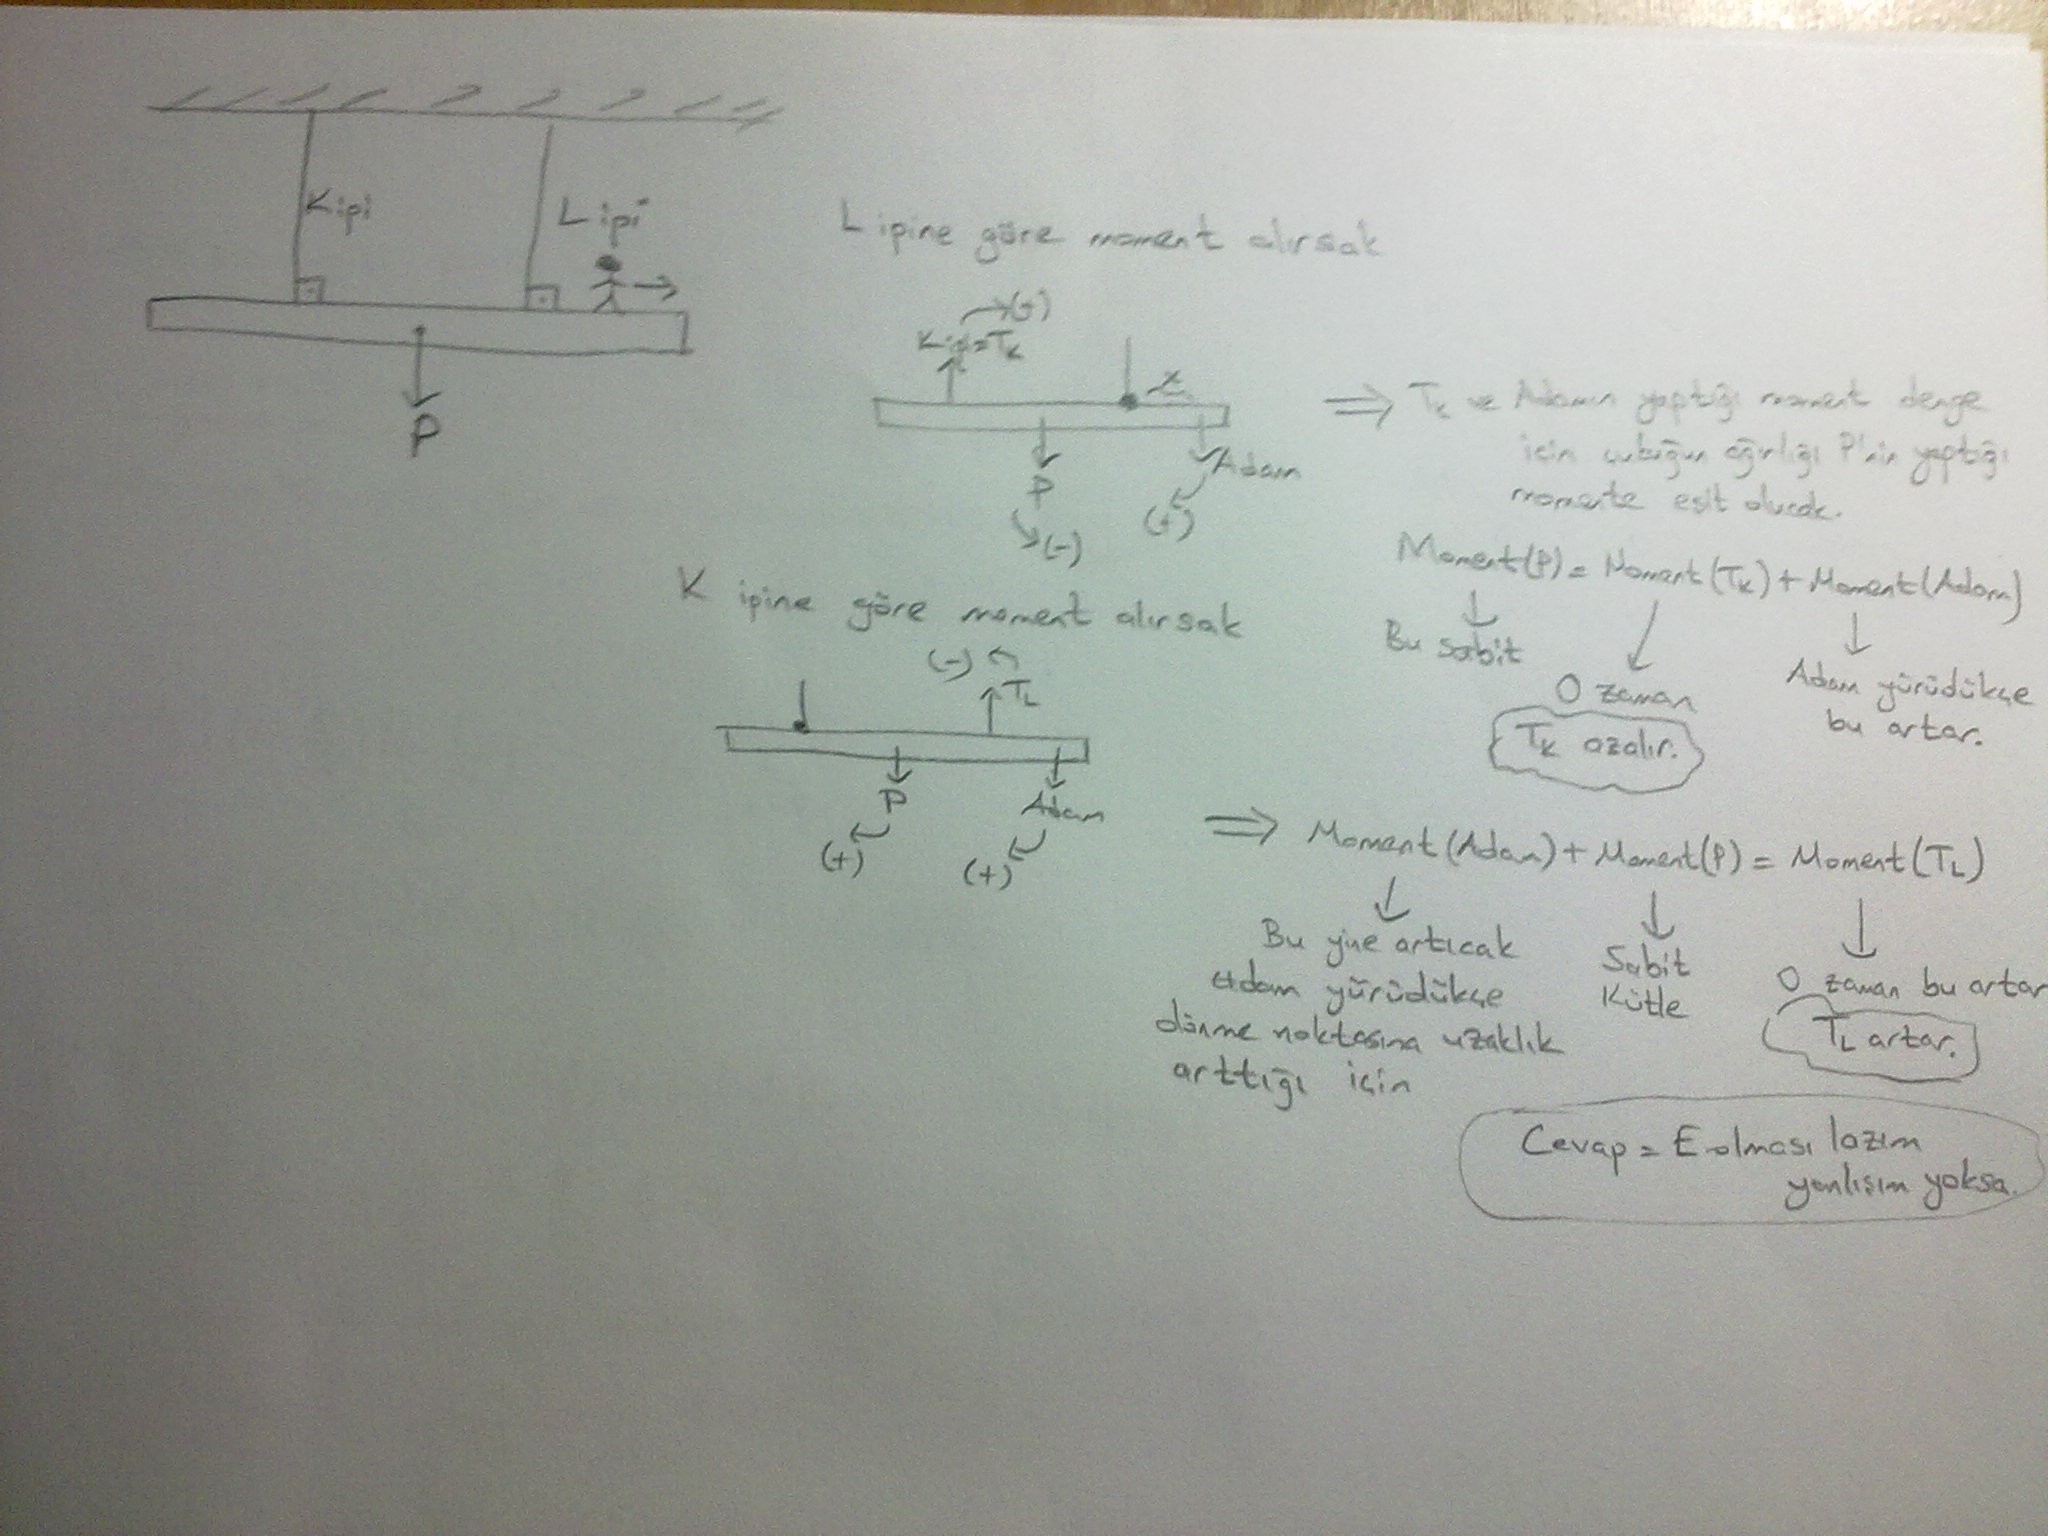 K ipi
L ipi
P
L ipine göre moment alırsak
(+)
K ipi = TK
x
P
Adam
(-)
(+)
⇒ TK ve Adamın yaptığı moment denge
için çubuğun ağırlığı P'nin yaptığı
momente eşit olucak.
Moment(P) = Moment(TK) + Moment(Adam)
Bu sabit
O zaman
TK azalır.
Adam yürüdükçe
bu artar.
K ipine göre moment alırsak
(-)
TL
P
Adam
(+)
(+)
⇒ Moment(Adam) + Moment(P) = Moment(TL)
Bu yine artıcak
adam yürüdükçe
dönme noktasına uzaklık
arttığı için
Sabit
Kütle
O zaman bu artar
TL artar.
Cevap = E olması lazım
yanlışım yoksa.